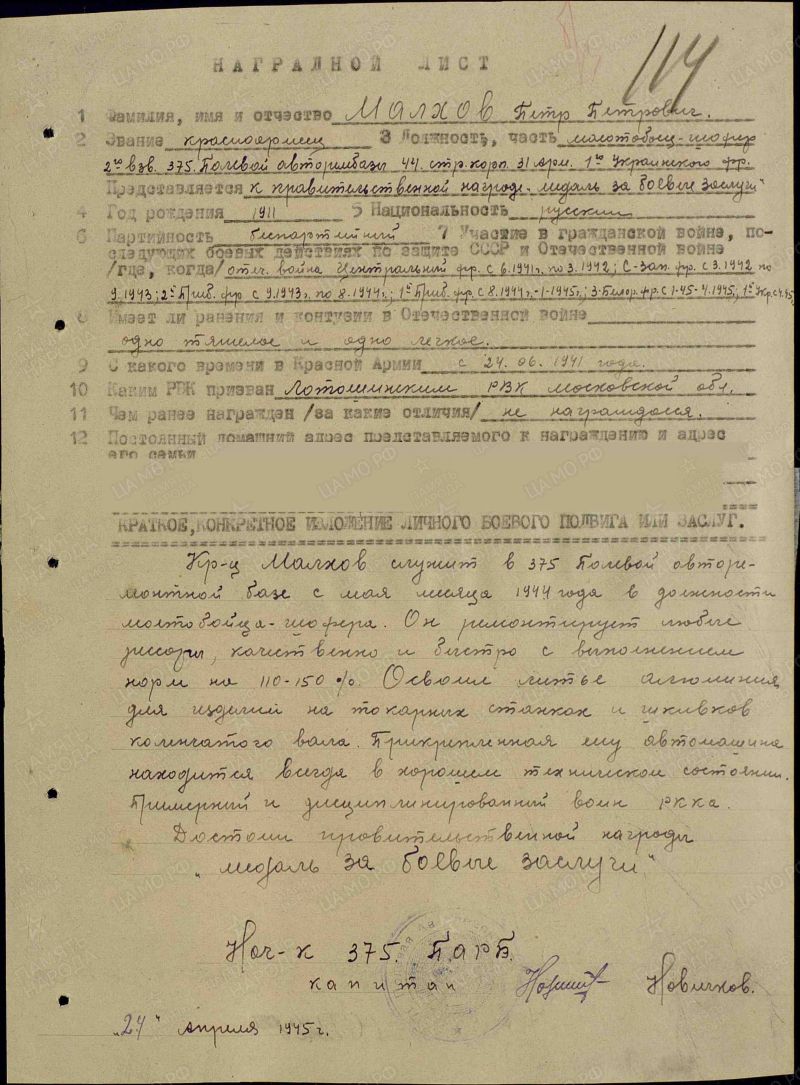 114
НАГРАДНОЙ ЛИСТ
1 Фамилия, имя и отчество Малхов Петр Петрович.
2 Звание красноармеец 3 Должность, часть молотобоец-шофер
2го взв. 375. Полевой авторембазы 44. стр. корп. 31 Арм. 1го Украинского фр.
Представляется к правительственной награде - медаль за боевые заслуги"
4 Год рождения 1911 5 Национальность русский
6 Партийность беспартийный 7 Участие в гражданской войне, по-
следующих боевых действиях по защите СССР и Отечественной войне
/где, когда/ отеч. война Центральный фр. с 6.1941г. по 3.1942; С-Зап. фр. с 3.1942 по
9.1943; 2й Приб. фр с 9.1943г. по 8.1944г.; 1й Приб. фр. с 8.1944г.-1-1945г.; 3-Белор. фр. с 1-45-4.1945г., 1й Укр. с 4.45
8 Имеет ли ранения и контузии в Отечественной войне
одно тяжелое и одно легкое.
9 С какого времени в Красной Армии с 24.06.1941 года.
10 Каким РВК призван Лотошинским РВК московской обл.
11 Чем ранее награжден /за какие отличия/ не награждался.
12 Постоянный домашний адрес представляемого к награждению и адрес
его семьи
КРАТКОЕ, КОНКРЕТНОЕ ИЗЛОЖЕНИЕ ЛИЧНОГО БОЕВОГО ПОДВИГА ИЛИ ЗАСЛУГ.
Кр-ц Малхов служит в 375 Полевой авторе-
монтной базе с мая месяца 1944 года в должности
молтобойца-шофера. Он ремонтирует любые
рессоры, качественно и быстро с выполнением
норм на 110-150%. Освоил литье алюминия
для изделий на токарных станках и шкивков
коленчатого вала. Прикрепленная ему автомашина
находится всегда в хорошем техническом состоянии.
Примерный и дисциплинированный воин РККА.
Достоин правительственной награды
"медаль за боевые заслуги"
Нач-к 375. П.А.Р.Б.
капитан Новичков.
"24" апреля 1945г.